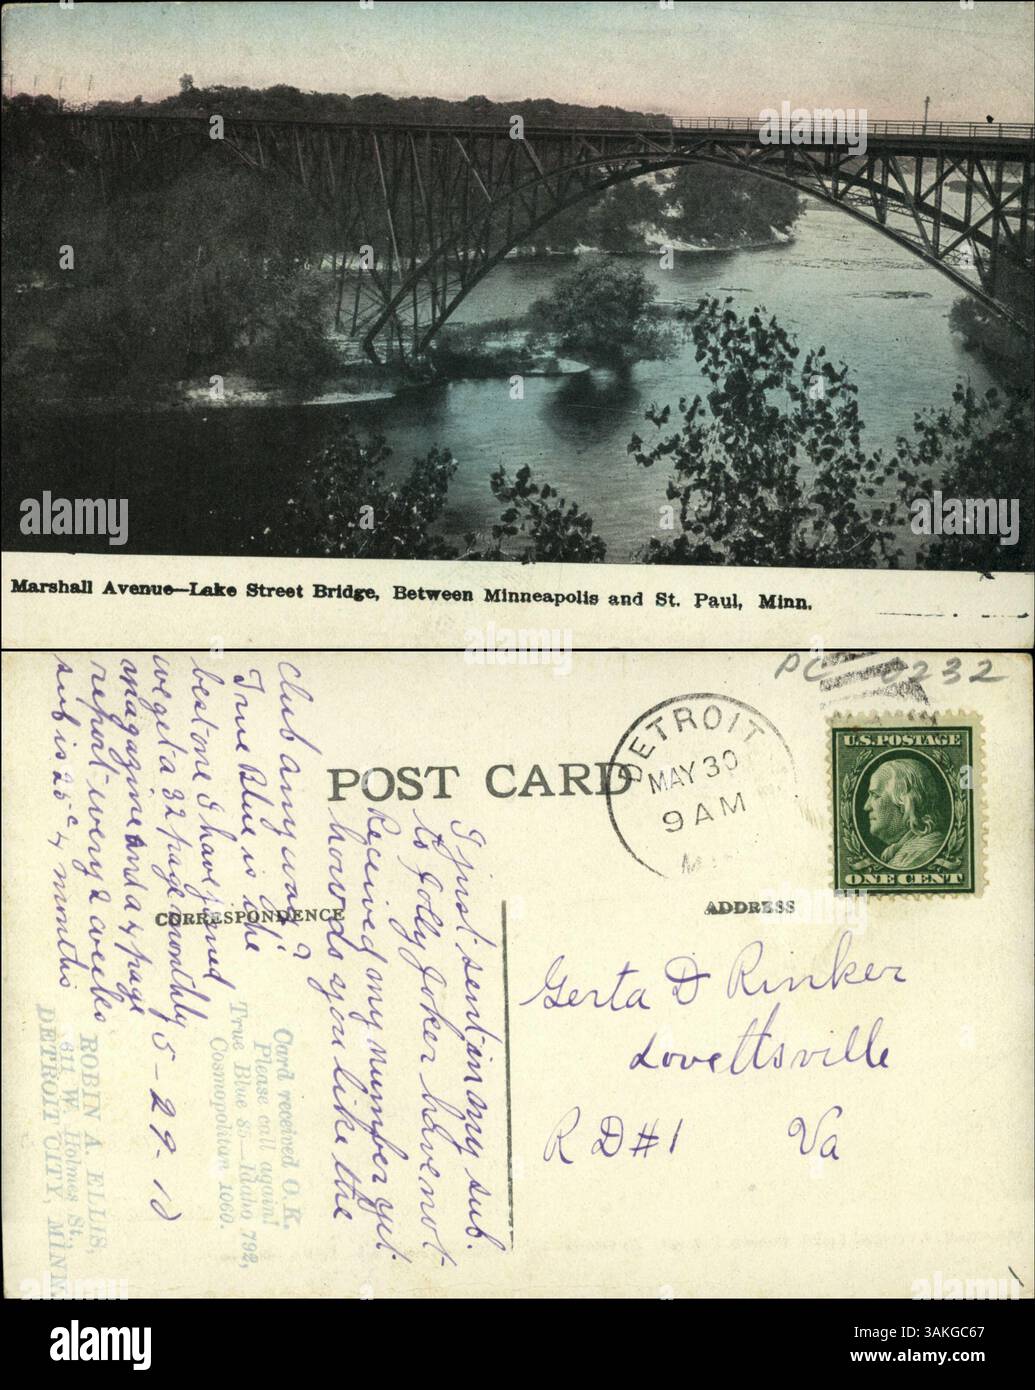 Marshall Avenue—Lake Street Bridge, Between Minneapolis and St. Paul, Minn.
PC 0232
POST CARD
DETROIT
MAY 30
9 AM
U.S. POSTAGE
ONE CENT
CORRESPONDENCE
ADDRESS
Gerta D Rinker
Lovettsville
R D #1 Va
I just sent in my sub.
to Jolly Joker have not
Received my number yet.
how do you like the
Club any way?
True Blue is the
best one I have joined
we get a 32 page monthly
magazine and a 4 page
report every 2 weeks
sub is 25c 4 months
5-29-10
Card received O.K.
Please call again!
True Blue 85—Idaho 792,
Cosmopolitan 1060.
ROBIN A. ELLIS,
611 W. Holmes St.,
DETROIT CITY, MINN
alamy
Image ID: 3AKGC67
www.alamy.com